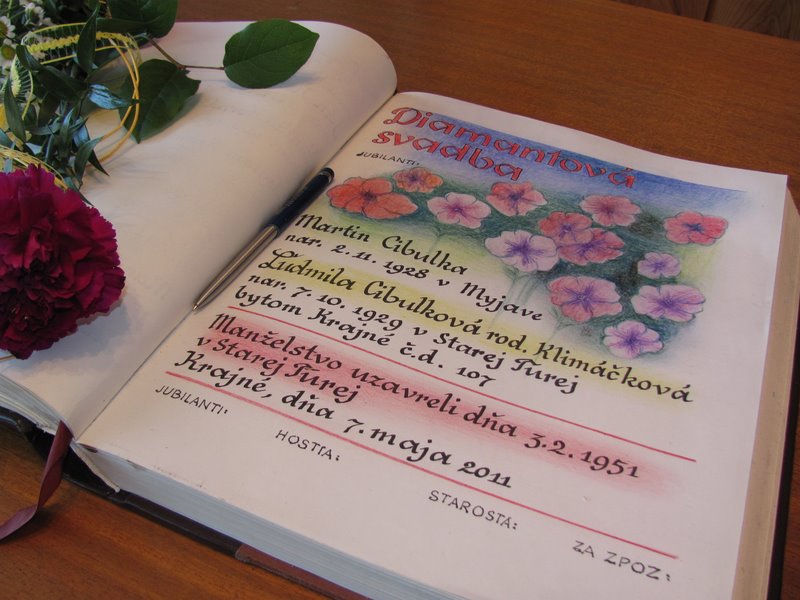 Diamantová
svadba
JUBILANTI:
Martin Cibulka
nar. 2. 11. 1928 v Myjave
Ľudmila Cibulková rod. Klimáčková
nar. 7. 10. 1929 v Starej Turej
bytom Krajné č.d. 107
Manželstvo uzavreli dňa 3.2.1951
v Starej Turej
Krajné, dňa 7. maja 2011
JUBILANTI:
HOSTIA:
STAROSTA:
ZA ZPOZ: